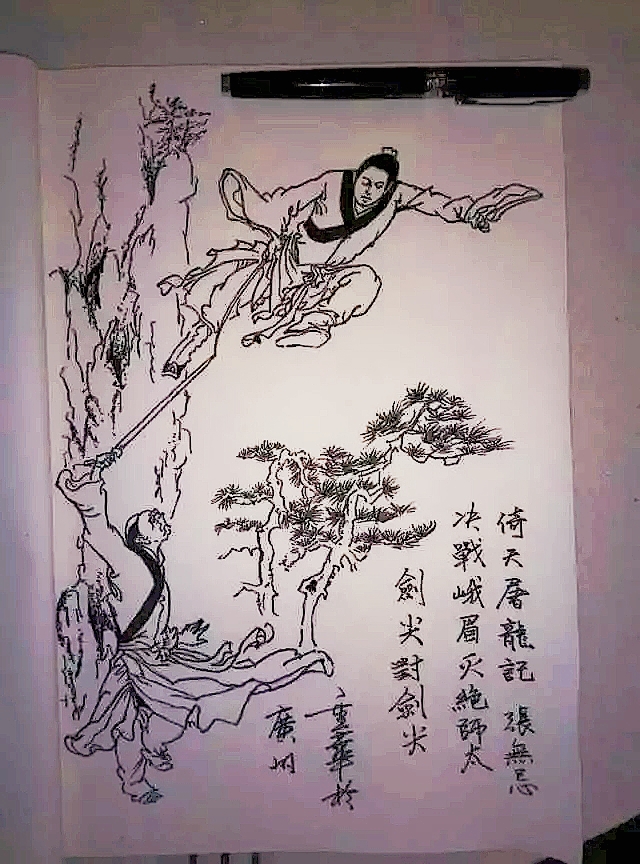 倚天屠龍記 張無忌
决戰峨眉灭絶師太
劍尖對劍尖
重華於
廣州